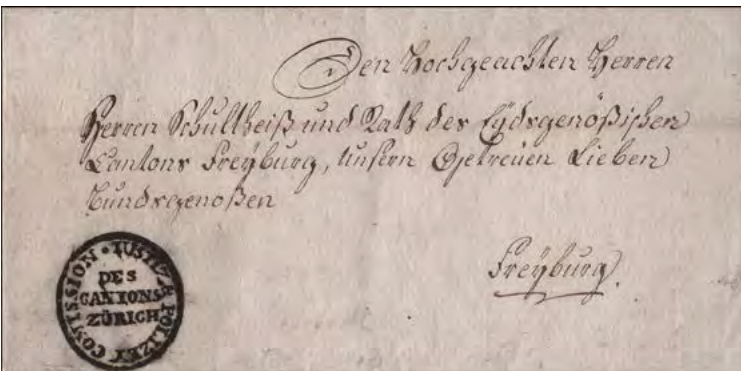 Den Hochgeachten Herren
Herren Schultheiß und Rath des Eydsgenößischen
Cantons Freyburg, Unsern Getreuen Lieben
Bundsgenoßen
Freyburg.
JUSTIZ & POLIZEY COMISSION
DES
CANTONS
ZÜRICH